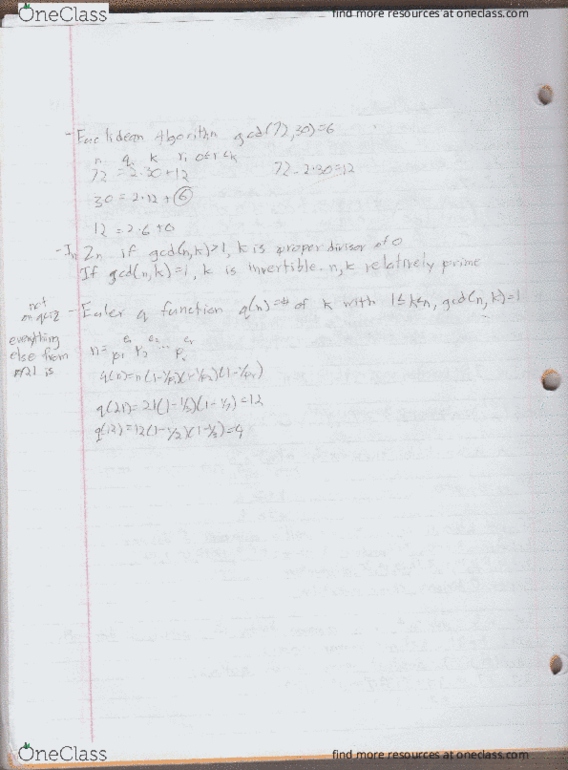 OneClass
find more resources at oneclass.com
- Euclidean Algorithm gcd(72,30)=6
n q k r, 0≤r<k
72 = 2·30+12 72-2·30=12
30 = 2·12+6
12 = 2·6+0
- In Zn if gcd(n,k)>1, k is proper divisor of 0
If gcd(n,k)=1, k is invertible. n,k relatively prime
not on quiz - Euler q function q(n)=# of k with 1≤k≤n, gcd(n,k)=1
everything else from is
n = p₁^e₁ p₂^e₂ ... pᵣ^eᵣ
q(n)=n(1-1/p₁)(1-1/p₂)(1-1/pᵣ)
q(21)=21(1-1/3)(1-1/7)=12
q(12)=12(1-1/2)(1-1/3)=4
OneClass
find more resources at oneclass.com